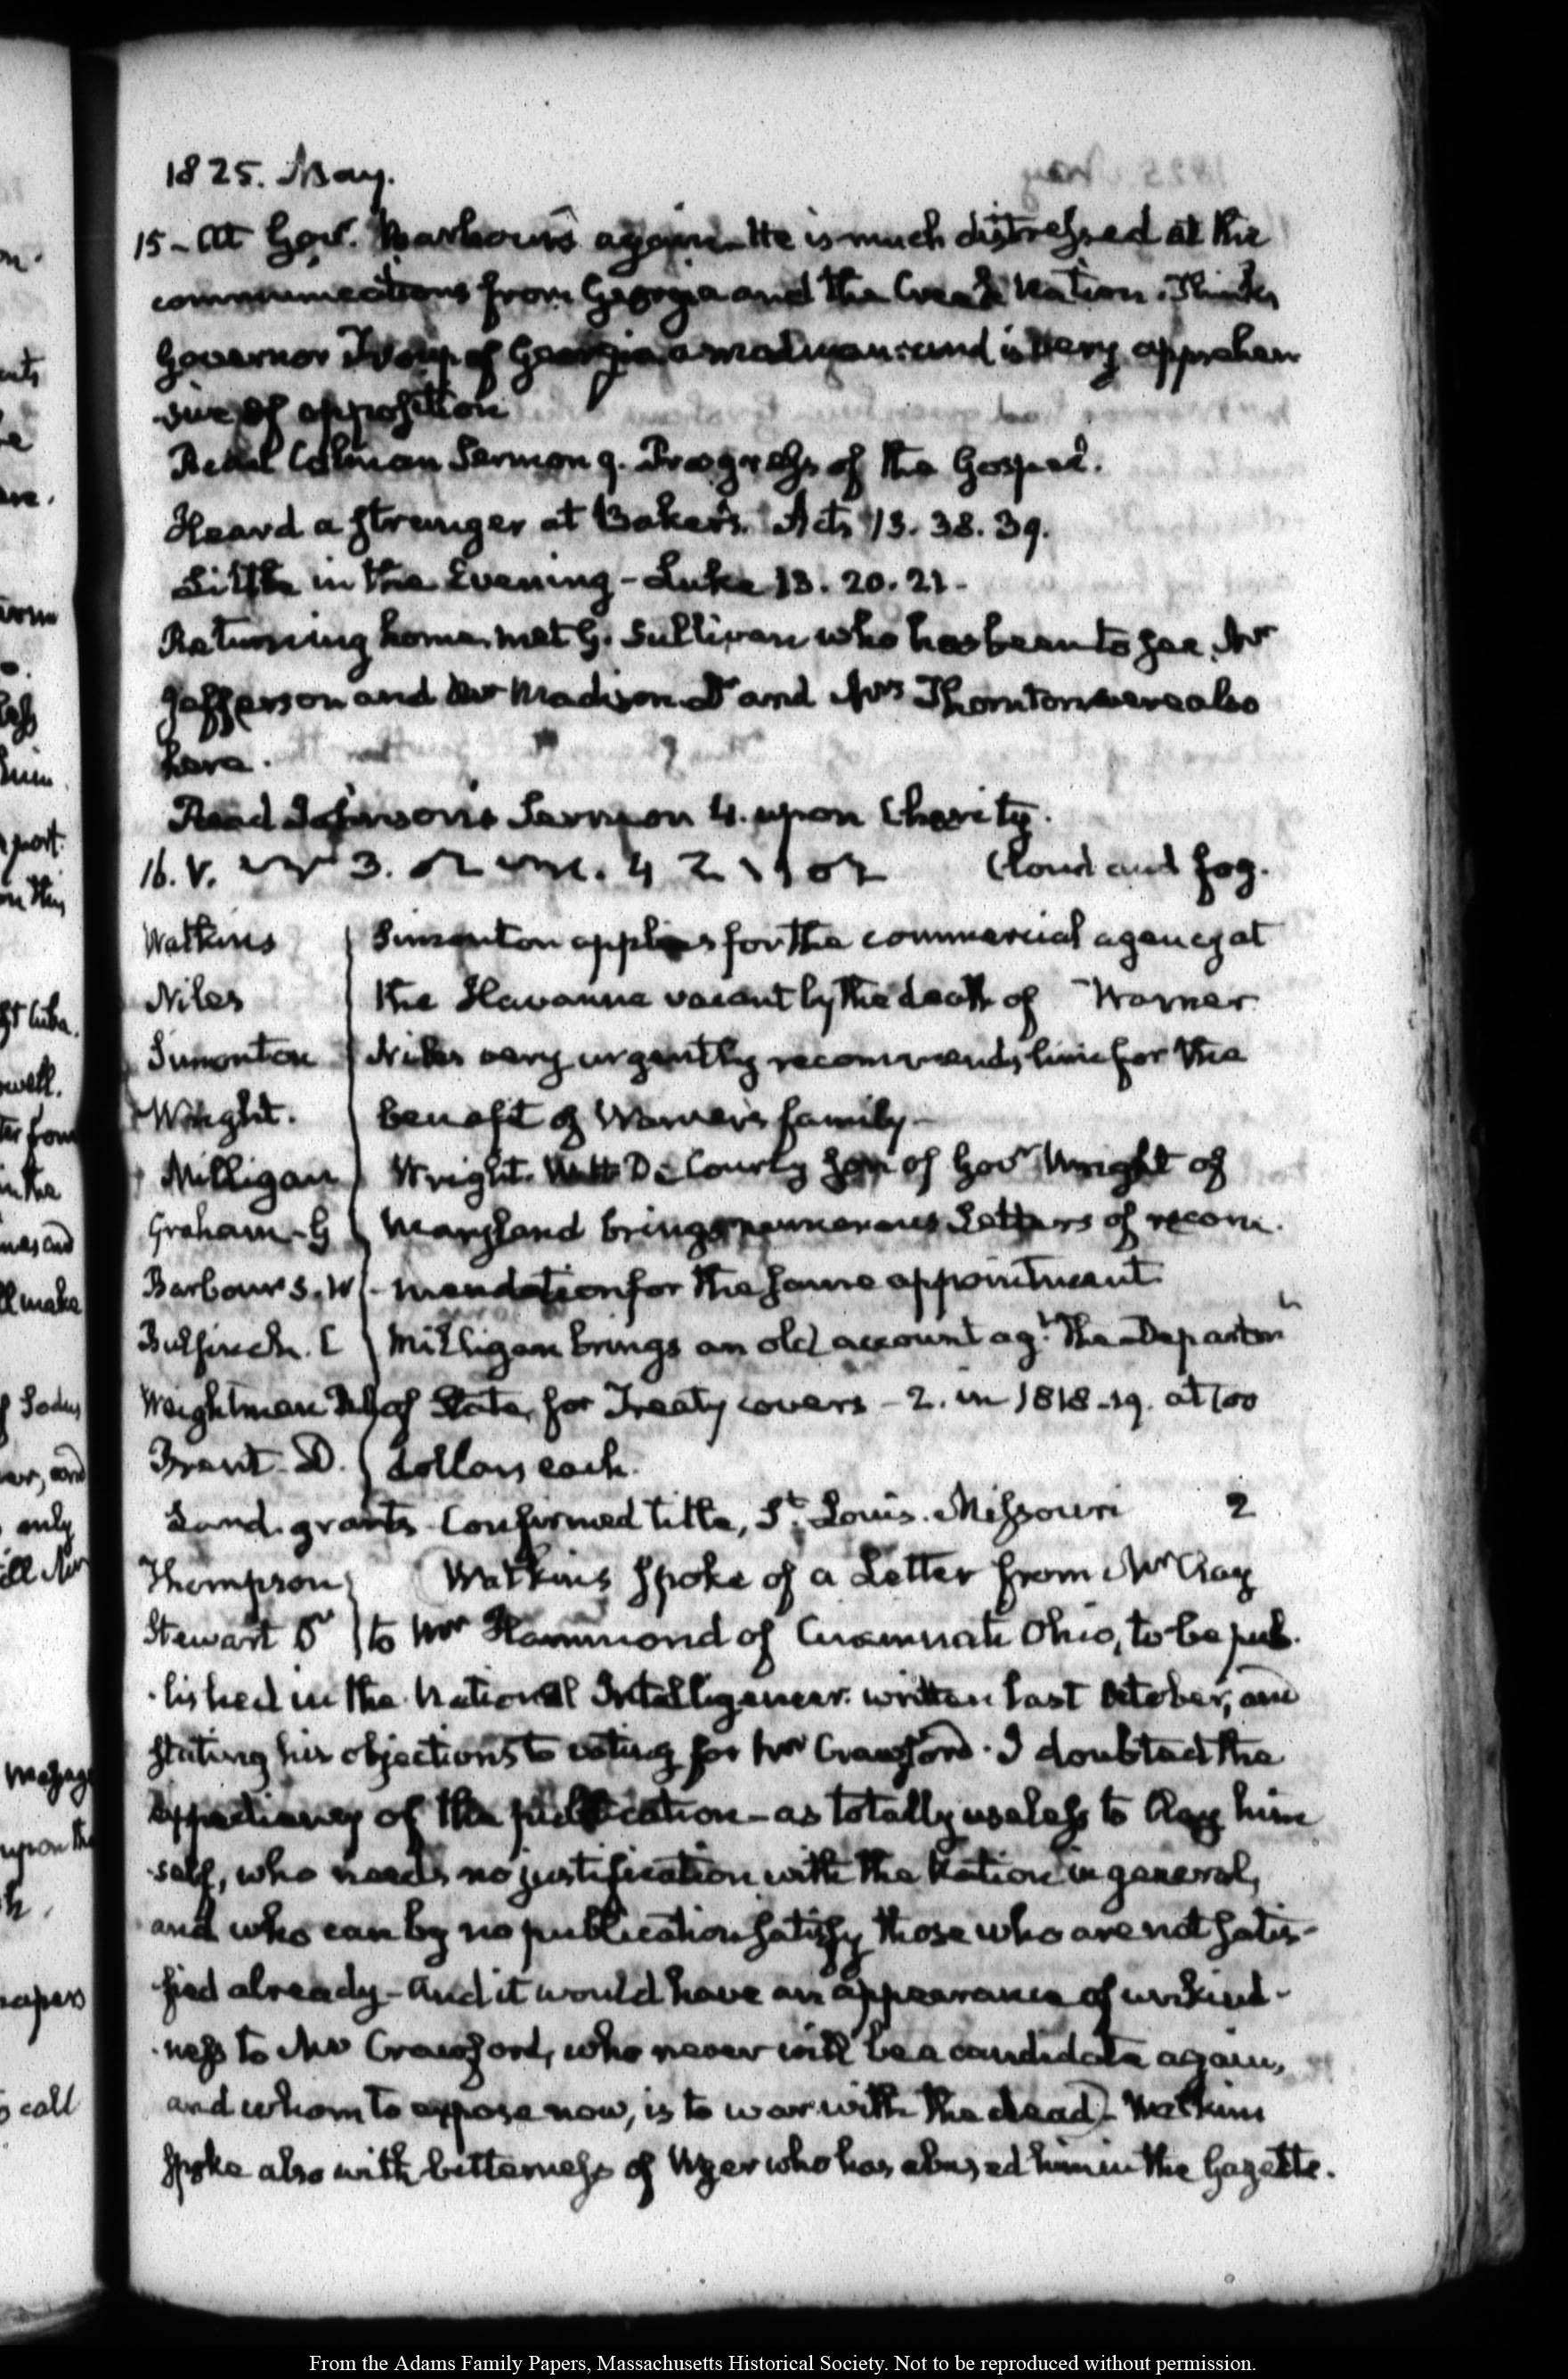 1825. May.
15 - At Govr. Barbour's again - He is much distressed at the
communications from Georgia and the Creek Nation. Thinks
Governor Troup of Georgia a madman: and is very apprehen
sive of opposition
Read Colman Sermon 9. Progress of the Gospel.
Heard a stranger at Baker's. Acts 13. 38. 39.
Little in the Evening - Luke 13. 20. 21 -
Returning home met G. Sullivan who has been to see Mr
Jefferson and Mr Madison Dr and Mrs Thornton were also
here.
Read Johnson's Sermon 4. upon Charity.
16. V. 3. 4 Cloud and fog.
Watkins Simonton applies for the commercial agency at
Niles the Havanna vacant by the death of Warner
Simonton Niles very urgently recommends him for the
Wright. benefit of Warner's family -
Milligan Wright. De Courcy Son of Govr Wright of
Graham - G Maryland brings numerous Letters of recom.
Barbour S. W - mendation for the same appointment.
Bulfinch. C Milligan brings an old account agt. the Departm
Weightman of State, for Treaty covers - 2. in 1818-19. at 100
Brent - D. dollars each.
Land. grants Confirmed title, St. Louis. Missouri 2
Thompson Watkins spoke of a Letter from Mr Clay
Stewart Dr to Mr Hammond of Cincinnati Ohio, to be pub.
lished in the National Intelligencer. written last October, and
stating his objections to voting for Mr Crawford. I doubted the
expediency of the publication - as totally useless to Clay him
self, who needs no justification with the Nation in general,
and who can by no publication satisfy those who are not satis-
fied already - And it would have an appearance of unkind-
ness to Mr Crawford, who never will be a candidate again,
and whom to oppose now, is to war with the dead - Watkins
spoke also with bitterness of Wyer who has abused him in the Gazette.
From the Adams Family Papers, Massachusetts Historical Society. Not to be reproduced without permission.